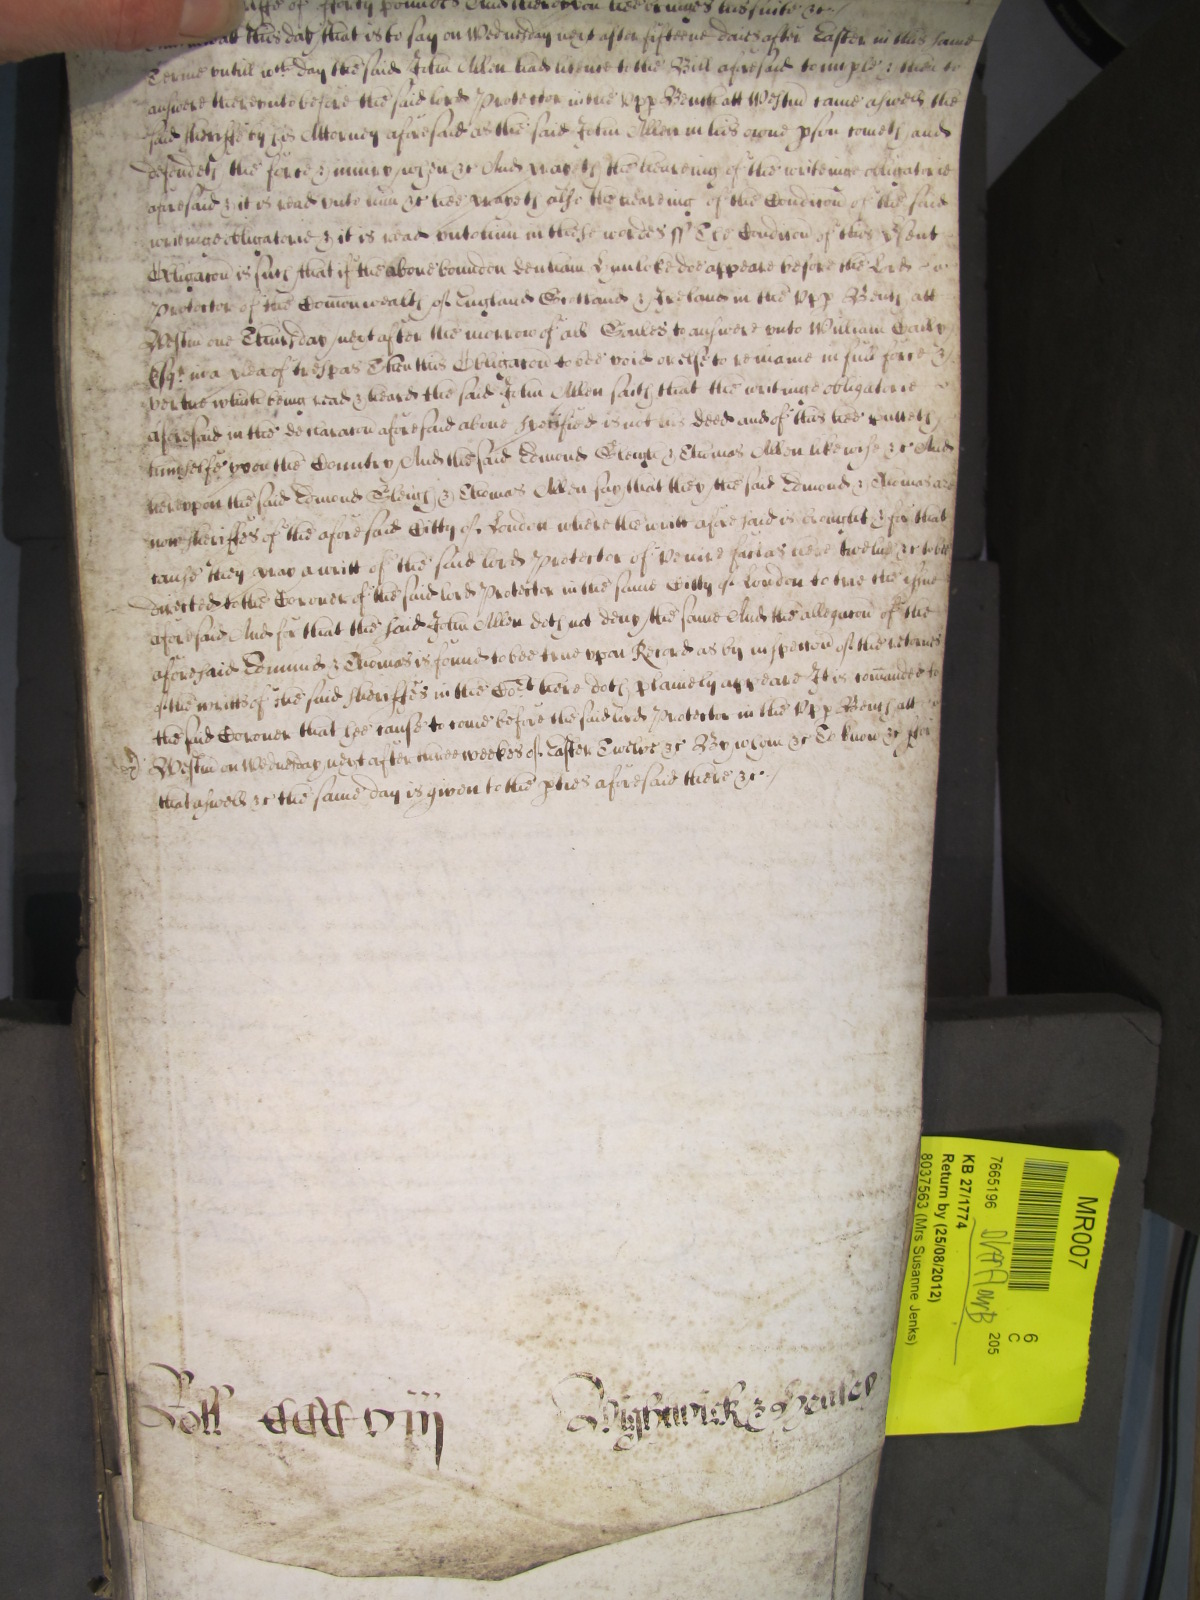 riffe of fforty pounds And thereupon hee bringes his suite &c
att this day that is to say on Wednesday next after fifteene daies after Easter in this same
Terme untill wch day the said John Allen had licence to the Bill aforesaid to imple & then to
answere thereunto before the said lord Protector in the Upp Bench att Westm came aswell the
said sheriffe by his Attorney aforesaid as the said John Allen in his owne pson cometh and
defendeth the force & iniury when &c And prayeth the heareing of the writeinge obligatorie
aforesaid & it is read unto him &c hee prayeth also the heareing of the Condicon of the said
writinge obligatorie & it is read unto him in these wordes ss The Condicon of this psent
Obligacon is such that if the above bounden Henham doe appeare before the Lord
Protector of the Comonwealth of England Scotland & Ireland in the Upp Bench att
Westm one Thursday next after the morrow of all Soules to answere unto William Baily
Esqr in a plea of trespas Then this Obligacon to bee void or else to remaine in full force &
vertue which being read & heard the said John Allen saith that the writinge obligatorie
aforesaid in the declaracon aforesaid above specified is not his deed and of this hee putteth
himselfe upon the Country And the said Edmond Sleigh & Thomas Allen likewise &c And
hereupon the said Edmond Sleigh & Thomas Allen say that they the said Edmond & Thomas are
now sheriffes of the aforesaid Citty of London where the writt aforesaid is brought & for that
cause they pray a writt of the said lord Protector of venire facias here twelve &c to bee
directed to the Coroner of the said lord Protector in the same Citty of London to trie the issue
aforesaid And for that the said John Allen doth not deny the same And the allegacon of the
aforesaid Edmund & Thomas is found to bee true upon Record as by inspeccon of the retornes
of the writts of the said sheriffes in the Cort here doth plainely appeare It is comanded to
the said Coroner that hee cause to come before the said lord Protector in the Upp Bench att
Westm on Wednesday next after three weekes of Easter Twelve &c By whom &c To know &c for
that aswell &c the same day is given to the pties aforesaid there &c
Roll CCCCviij
Wightwick & Henley
MR007
6
C
205
7665196
KB 27/1774
Return by (25/08/2012)
8037563 (Mrs Susanne Jenks)